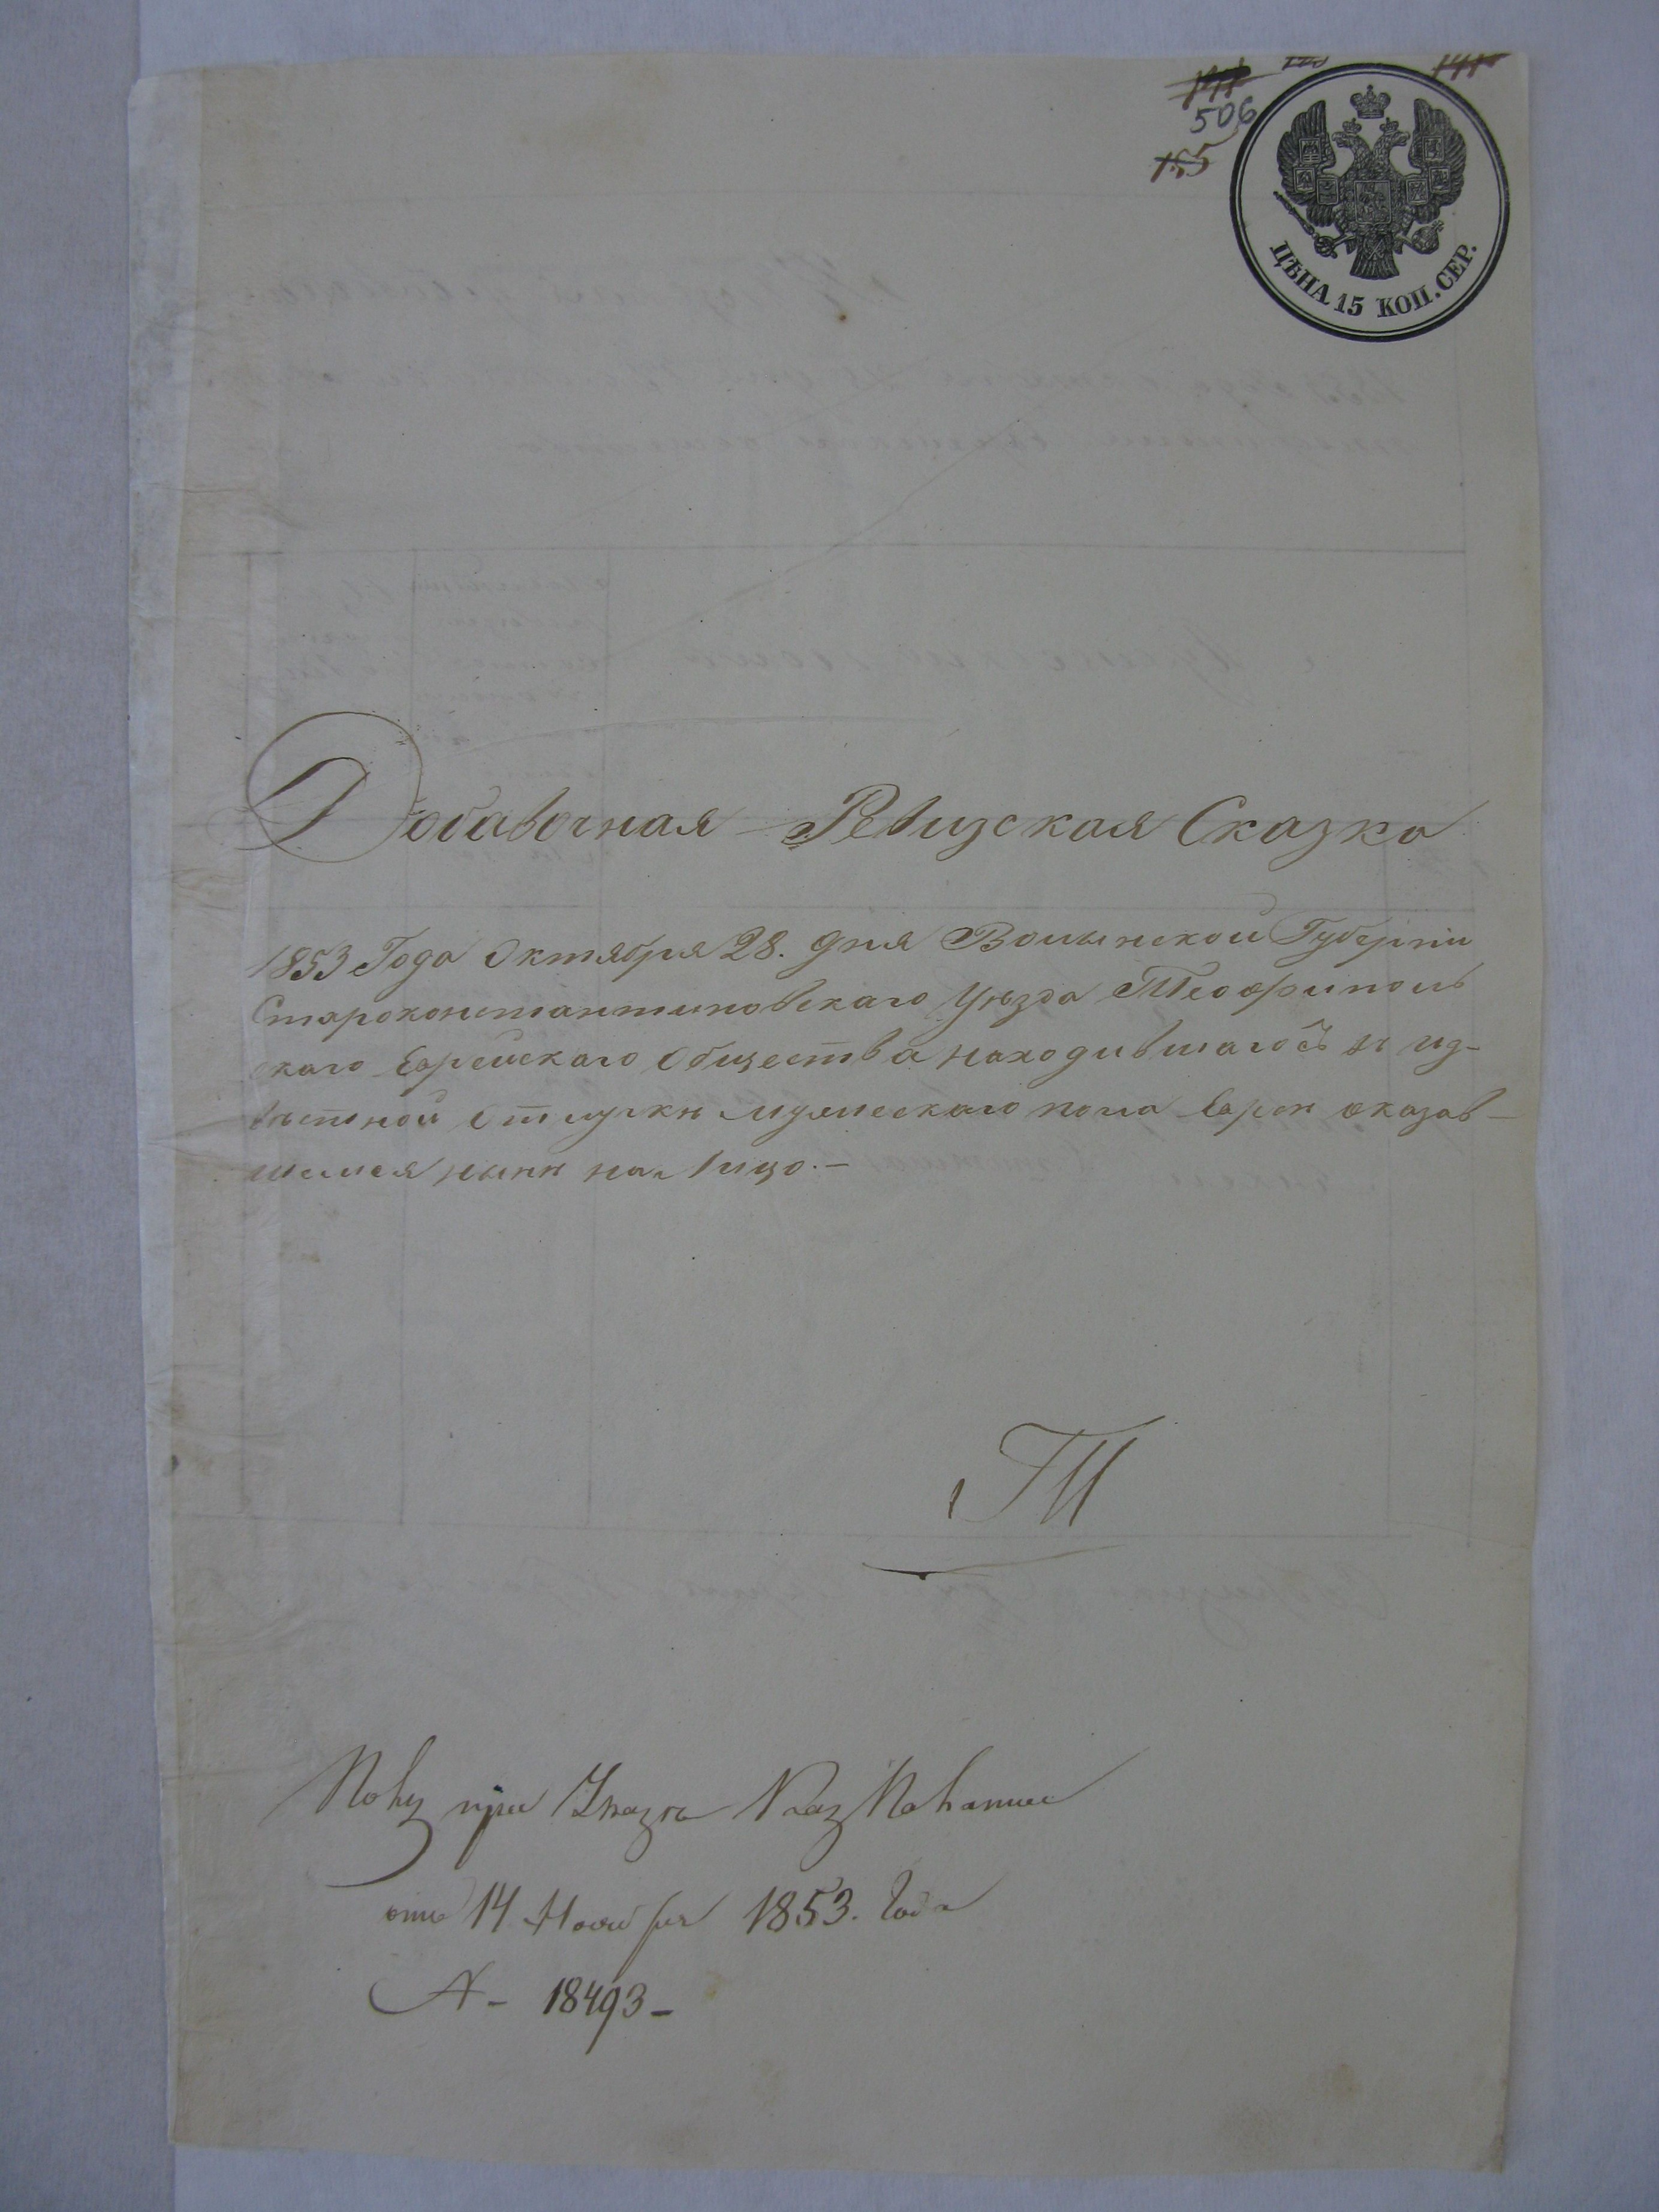 506
155
ЦѢНА 15 КОП. СЕР.
Добавочная Ревизская Сказка
1853 Года Октября 28. дня Волынской Губерніи
Староконстантиновскаго Уѣзда Теофиполь
скаго Еврейскаго Общества находившагося въ
Отлучки мужескаго пола Еврея оказав-
шемся нынѣ на Лицо.-
ТП
при Указѣ Каз Палаты
отъ 14 Ноября 1853. Года
№ - 18493-